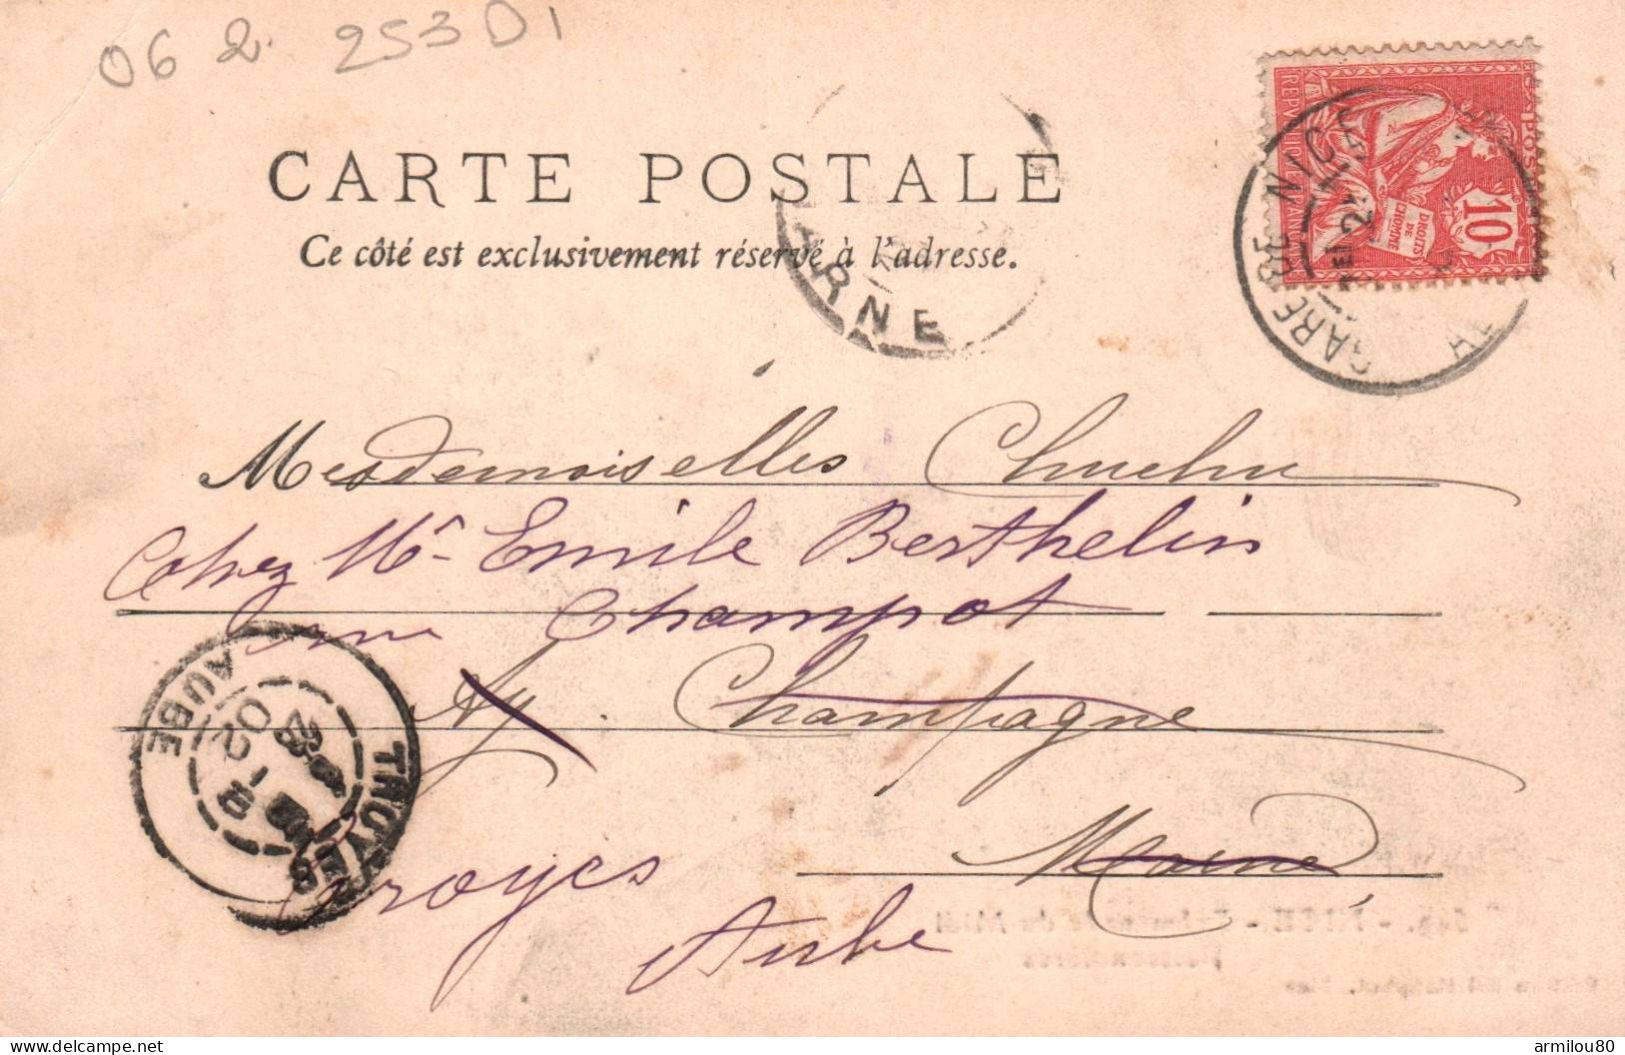 06 2 253 D1
CARTE POSTALE
Ce côté est exclusivement réservé à l'adresse.
RÉPUBLIQUE FRANÇAISE
POSTES
10
DROITS
DE
L'HOMME
GARE DE NICE
ARNE
Mesdemoiselles
Chez Mr Emile Berthelin
rue Champot
Ay. Champagne
Marne
Troyes
Aube
TROYES
AUBE
02
armilou80
delcampe.net